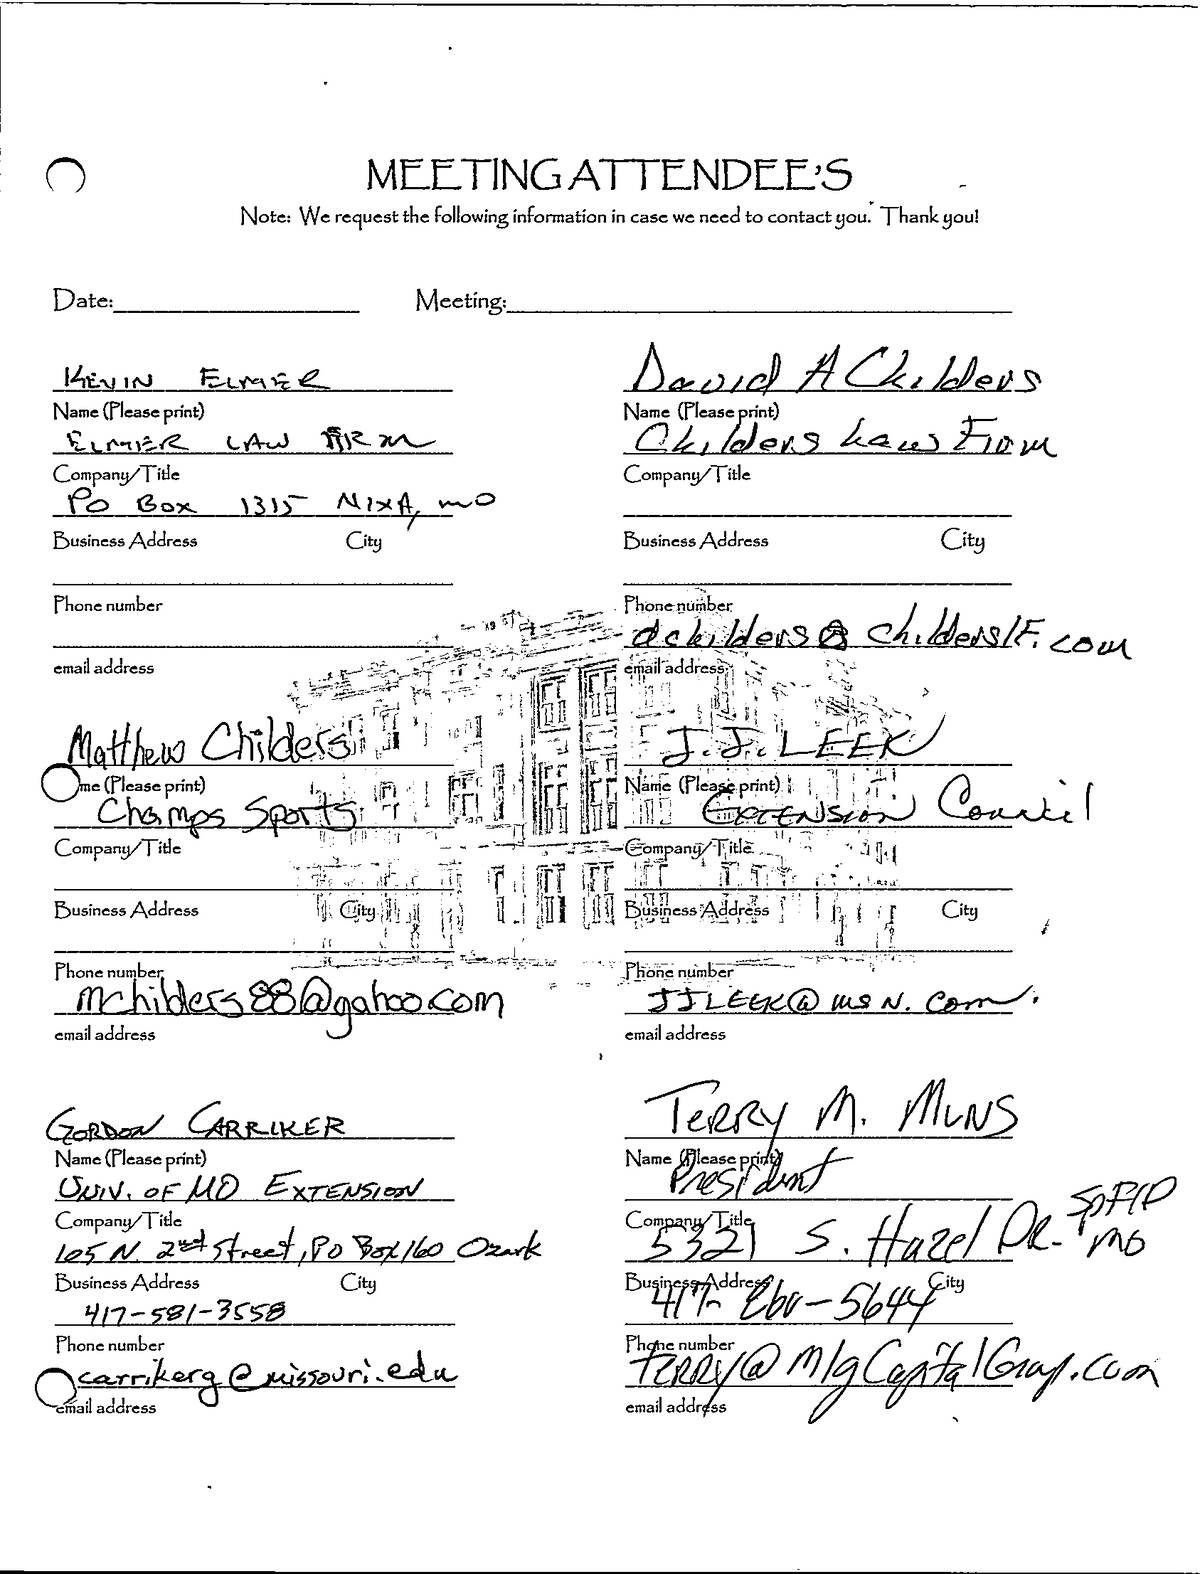 MEETING ATTENDEE'S
Note: We request the following information in case we need to contact you. Thank you!
Date: Meeting:
KEVIN ELMER
Name (Please print)
ELMER LAW FIRM
Company/Title
PO Box 1315 NIXA, MO
Business Address City
Phone number
email address
David A Childers
Name (Please print)
Childers Law Firm
Company/Title
Business Address City
Phone number
dchilders@childerslf.com
email address
Matthew Childers
me (Please print)
Champs Sports
Company/Title
Business Address City
Phone number
mchilders88@yahoo.com
email address
J.J. LEEK
Name (Please print)
EXTENSION Council
Company/Title
Business Address City
Phone number
JJLEEK@MSN.com
email address
GORDON CARRIKER
Name (Please print)
UNIV. OF MO EXTENSION
Company/Title
105 N. 2nd Street, PO Box 160 Ozark
Business Address City
417-581-3558
Phone number
carrikerg@missouri.edu
email address
TERRY M. MUNS
Name (Please print)
President
Company/Title
5321 S. Hazel DR. SPFID MO
Business Address City
417-260-5644
Phone number
TERRY@MlgCapitalGroup.com
email address